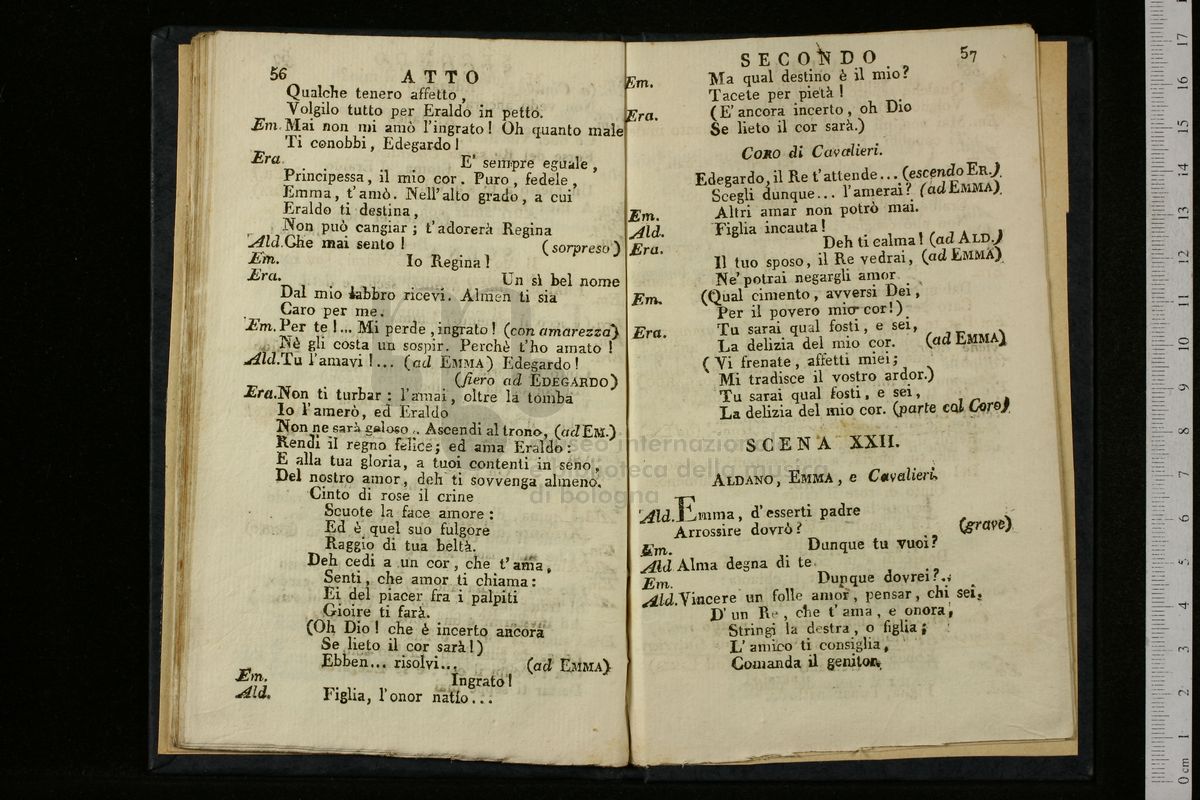 56
ATTO
Qualche tenero affetto,
Volgilo tutto per Eraldo in petto.
Em. Mai non mi amò l'ingrato! Oh quanto male
Ti conobbi, Edegardo!
Era. E' sempre eguale,
Principessa, il mio cor. Puro, fedele,
Emma, t'amò. Nell'alto grado, a cui
Eraldo ti destina,
Non può cangiar; t'adorerà Regina
Ald. Che mai sento! (sorpreso)
Em. Io Regina!
Era. Un sì bel nome
Dal mio labbro ricevi. Almen ti sia
Caro per me.
Em. Per te!... Mi perde, ingrato! (con amarezza)
Nè gli costa un sospir. Perchè t'ho amato!
Ald. Tu l'amavi!... (ad EMMA) Edegardo!
(fiero ad EDEGARDO)
Era. Non ti turbar: l'amai, oltre la tomba
Io l'amerò, ed Eraldo
Non ne sarà geloso.. Ascendi al trono, (ad EM.)
Rendi il regno felice; ed ama Eraldo:
E alla tua gloria, a tuoi contenti in seno,
Del nostro amor, deh ti sovvenga almeno.
Cinto di rose il crine
Scuote la face amore:
Ed è quel suo fulgore
Raggio di tua beltà.
Deh cedi a un cor, che t'ama,
Senti, che amor ti chiama:
Ei del piacer fra i palpiti
Gioire ti farà.
(Oh Dio! che è incerto ancora
Se lieto il cor sarà!)
Ebben... risolvi... (ad EMMA)
Em. Ingrato!
Ald. Figlia, l'onor natio...
SECONDO
57
Em. Ma qual destino è il mio?
Tacete per pietà!
Era. (E' ancora incerto, oh Dio
Se lieto il cor sarà.)
CORO di Cavalieri.
Edegardo, il Re t'attende... (escendo ER.)
Scegli dunque... l'amerai? (ad EMMA)
Em. Altri amar non potrò mai.
Ald. Figlia incauta!
Era. Deh ti calma! (ad ALD.)
Il tuo sposo, il Re vedrai, (ad EMMA)
Ne' potrai negargli amor
Em. (Qual cimento, avversi Dei,
Per il povero mio cor!)
Era. Tu sarai qual fosti, e sei,
La delizia del mio cor. (ad EMMA)
(Vi frenate, affetti miei;
Mi tradisce il vostro ardor.)
Tu sarai qual fosti, e sei,
La delizia del mio cor. (parte col Coro)
SCENA XXII.
ALDANO, EMMA, e Cavalieri.
Ald. Emma, d'esserti padre
Arrossire dovrò? (grave)
Em. Dunque tu vuoi?
Ald Alma degna di te.
Em. Dunque dovrei?..
Ald. Vincere un folle amor, pensar, chi sei.
D'un Re, che t'ama, e onora,
Stringi la destra, o figlia;
L'amico ti consiglia,
Comanda il genitor.
museo internazionale
biblioteca della musica
di bologna
0 cm 1 2 3 4 5 6 7 8 9 10 11 12 13 14 15 16 17